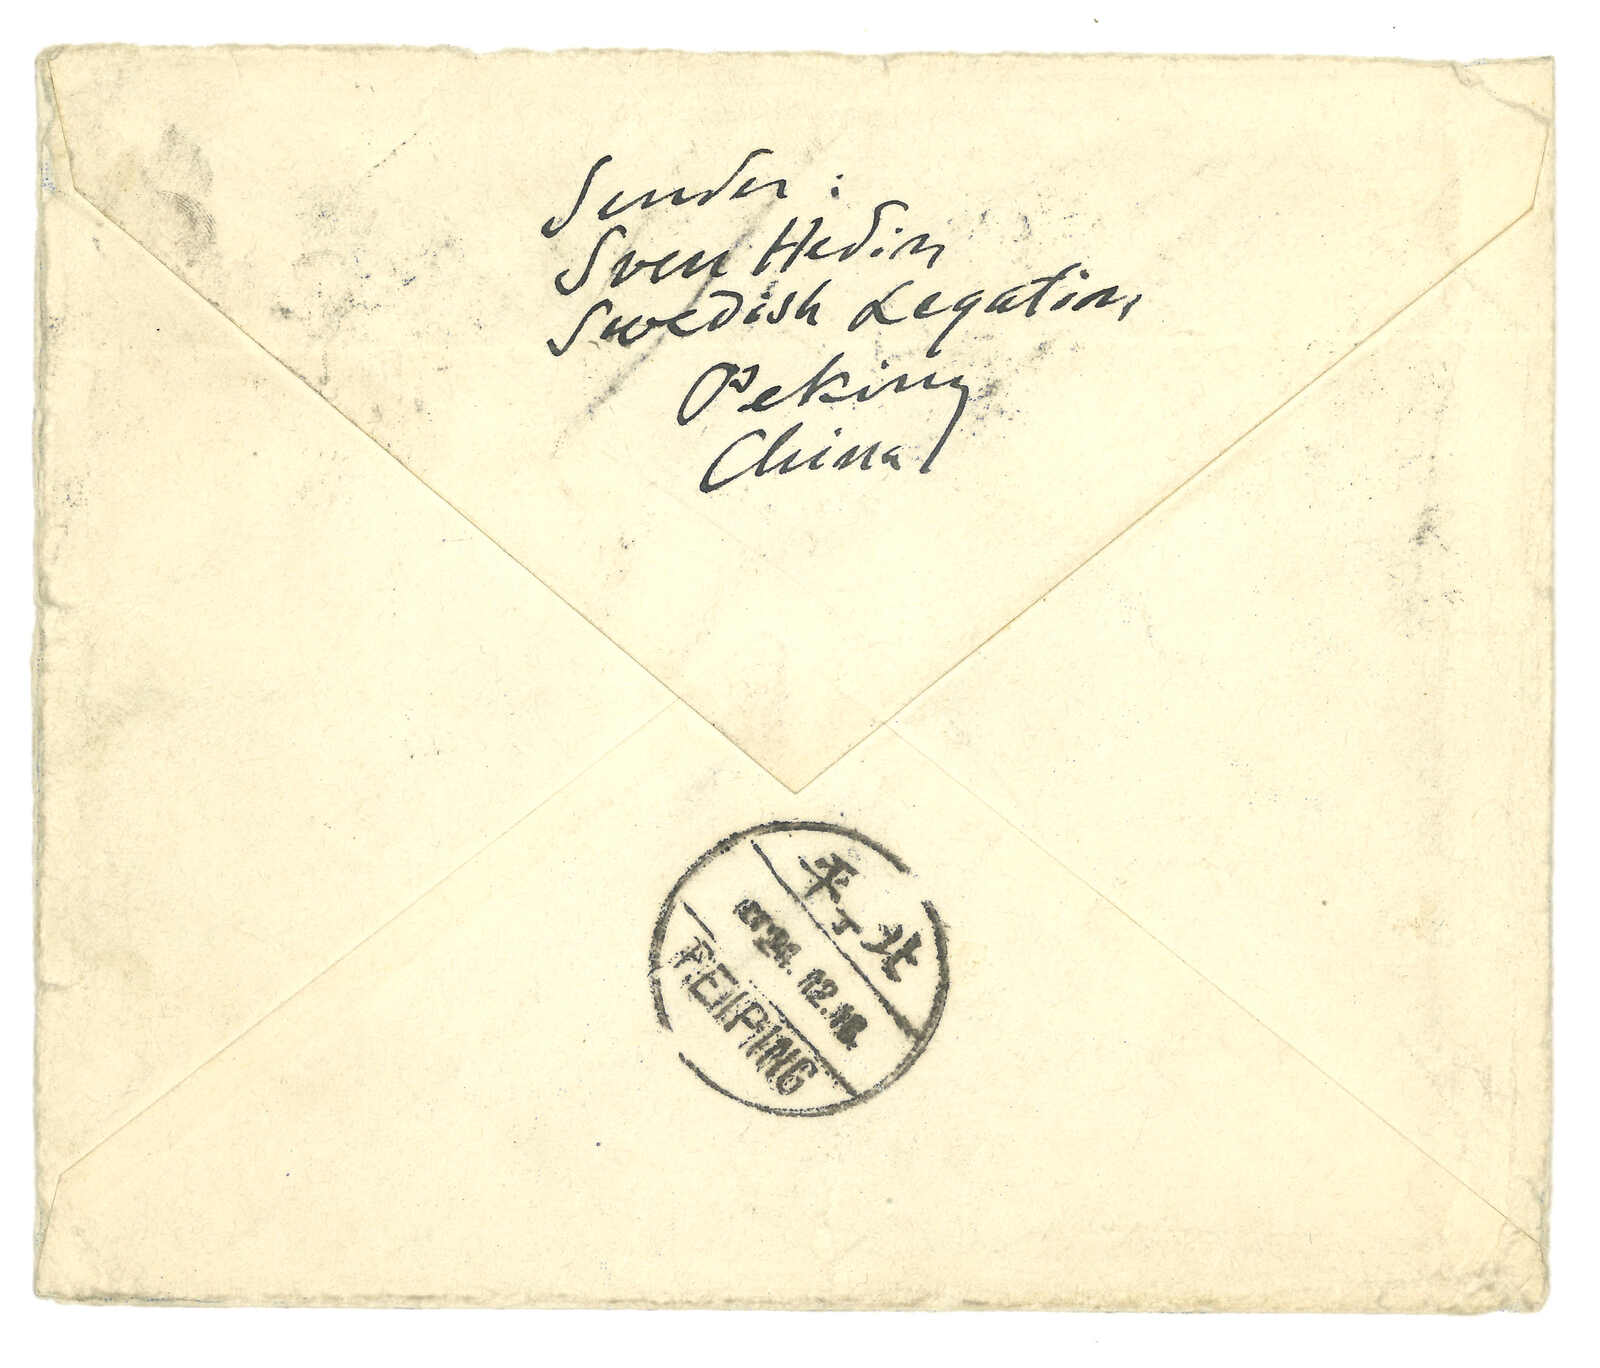 Sender:
Sven Hedin
Swedish Legation,
Peking
China
北平
12.18.
PEIPING